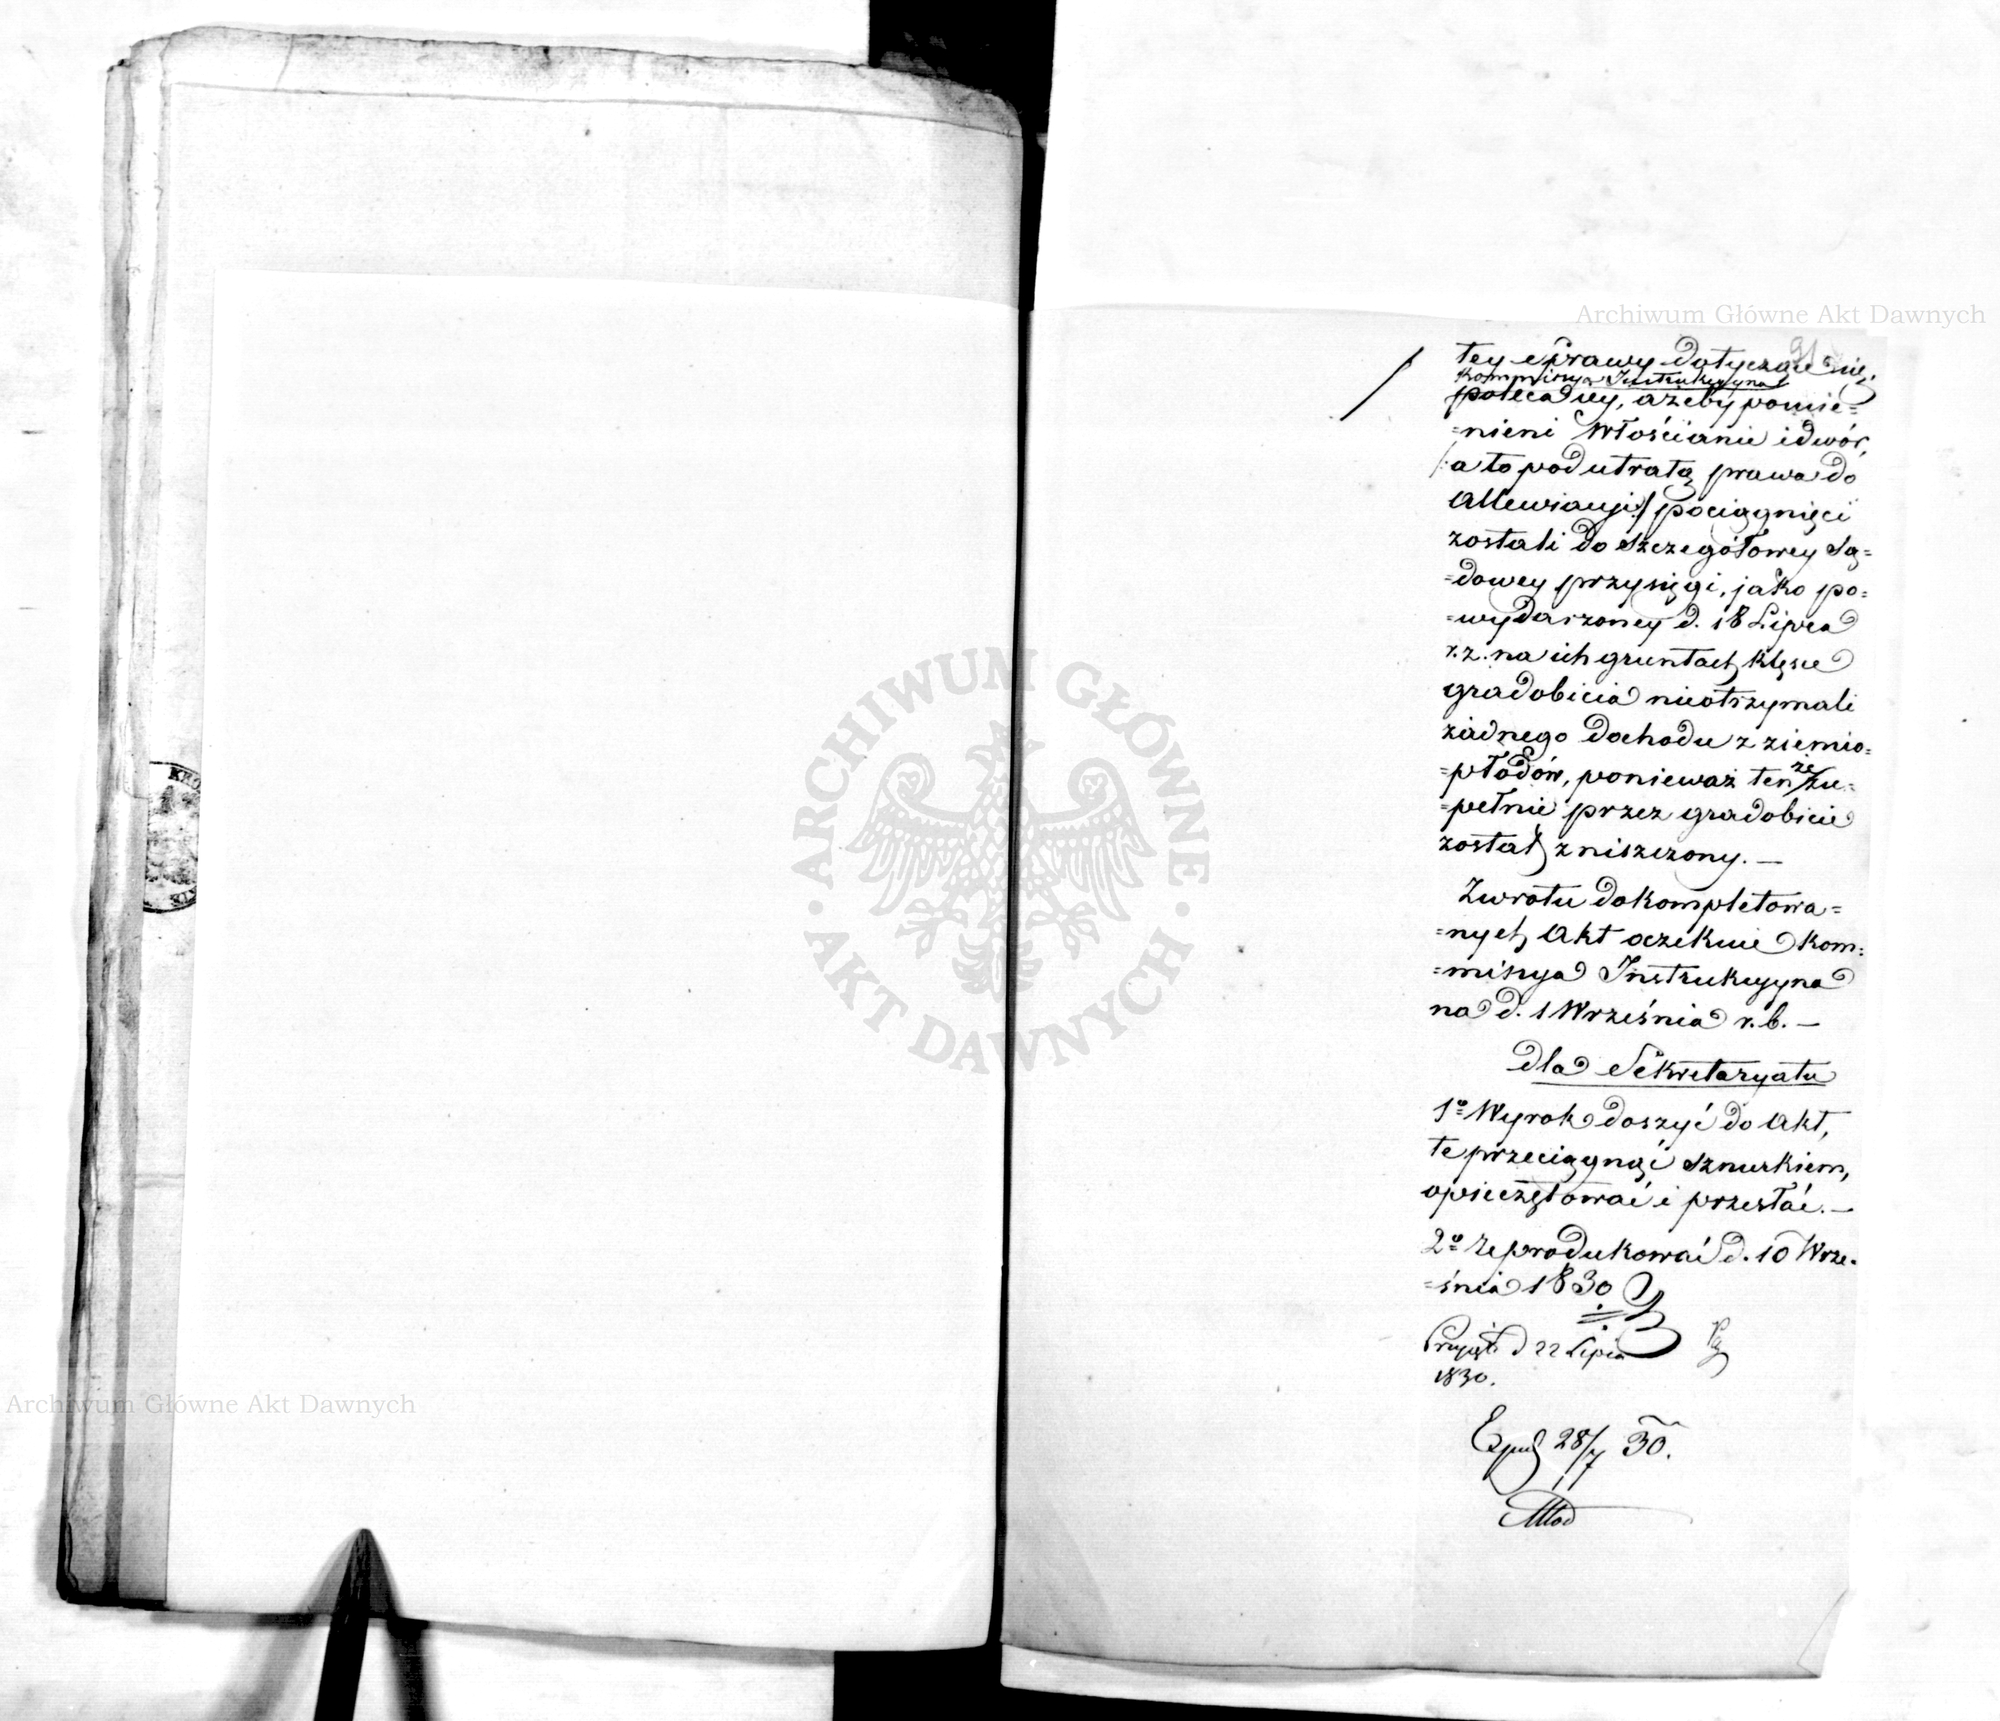 Archiwum Główne Akt Dawnych
91
tey Sprawy dotyczące się,
Kommissya Instrukcyyna
poleca jey, ażeby pomie=
=nieni Włościanie i dwór,
/: a to pod utratą prawa do
Allewiacyi :/ pociągnięci
zostali do szczegółowey Są=
=dowey przysięgi, jako po=
=wydarzoney d. 18 Lipca
r. z. na ich gruntach klęsce
gradobicia nieotrzymali
żadnego dochodu z ziemio=
=płodów, ponieważ tenże zu=
=pełnie przez gradobicie
został zniszczony. —
Zwrotu dokompletowa=
=nych Akt oczekuie Kom=
=missya Instrukcyyna
na d. 1 Września r. b. —
dla Sekretaryatu
1º Wyrok doszyć do Akt,
te przeciągnąć sznurkiem,
opieczętować i przesłać. —
2º Reprodukować d. 10 Wrze=
=śnia 1830
Przyięto d 22 Lipca
1830.
Exped 28/7 30.
ARCHIWUM GŁÓWNE
AKT DAWNYCH
Archiwum Główne Akt Dawnych